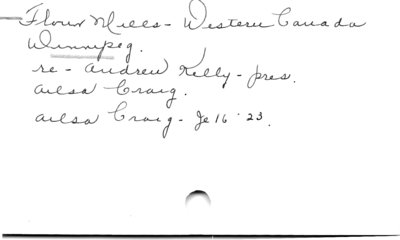 Flour Mills - Western Canada
Winnipeg.
re - Andrew Kelly - pres.
Ailsa Craig.
Ailsa Craig - Je 16 '23.